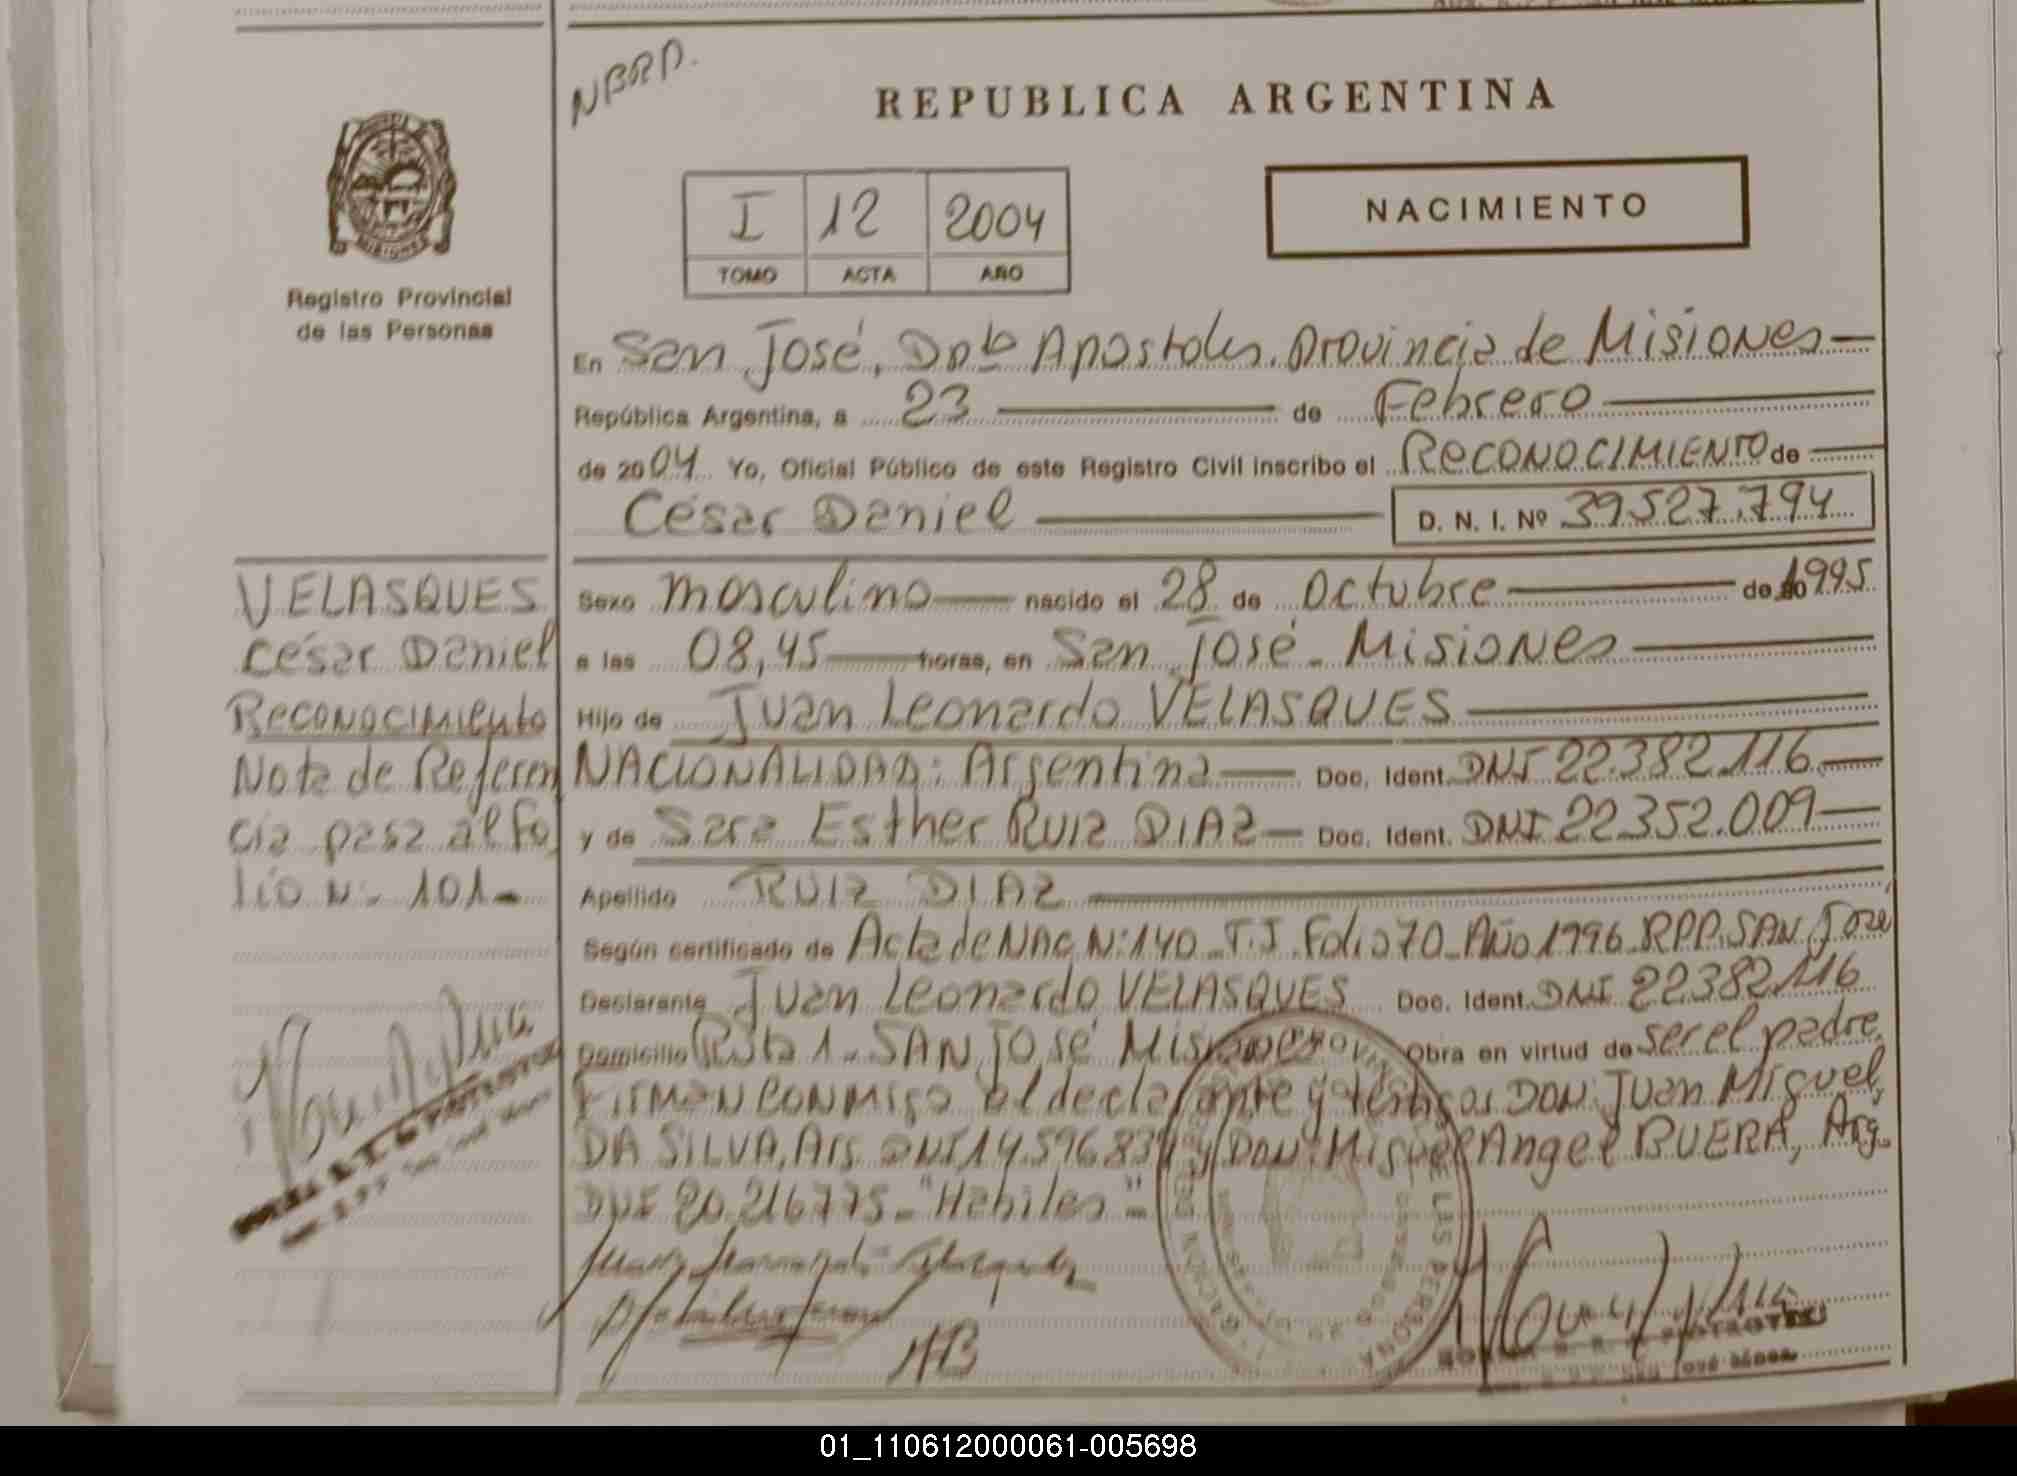 NBRD.
REPUBLICA ARGENTINA
I 12 2004
TOMO ACTA AÑO
NACIMIENTO
MISIONES
Registro Provincial
de las Personas
En San José, Dpto Apostoles. Provincia de Misiones—
República Argentina, a 23 — de Febrero —
de 2004 Yo, Oficial Público de este Registro Civil inscribo el RECONOCIMIENTO de —
César Daniel — D. N. I. Nº 39.527.794
VELASQUES
César Daniel
Reconocimiento
Nota de Referen
cia pasa al fo
lio N: 101-
Sexo masculino — nacido el 28 de Octubre — de 1995
a las 08,45 — horas, en San José - Misiones —
Hijo de Juan Leonardo VELASQUES —
NACIONALIDAD: Argentina — Doc. Ident. DNI 22.382.116 —
y de Sara Esther RUIZ DIAZ — Doc. Ident. DNI 22.352.009 —
Apellido RUIZ DIAZ —
Según certificado de Acta de NAC N: 140 - T.I. Folio 70 - Año 1996 RPP. SAN José
Declarante Juan Leonardo VELASQUES Doc. Ident. DNI 22382.116
Domicilio Ruta 1 - SAN José Misiones Obra en virtud de ser el padre.
Firman conmigo el declarante y testigos DON: Juan Miguel
DA SILVA, Arg. DNI 14.596.834 y Don: Miguel Angel BUERA, Arg.
DNI 20.216775 - "Habiles" -
HB